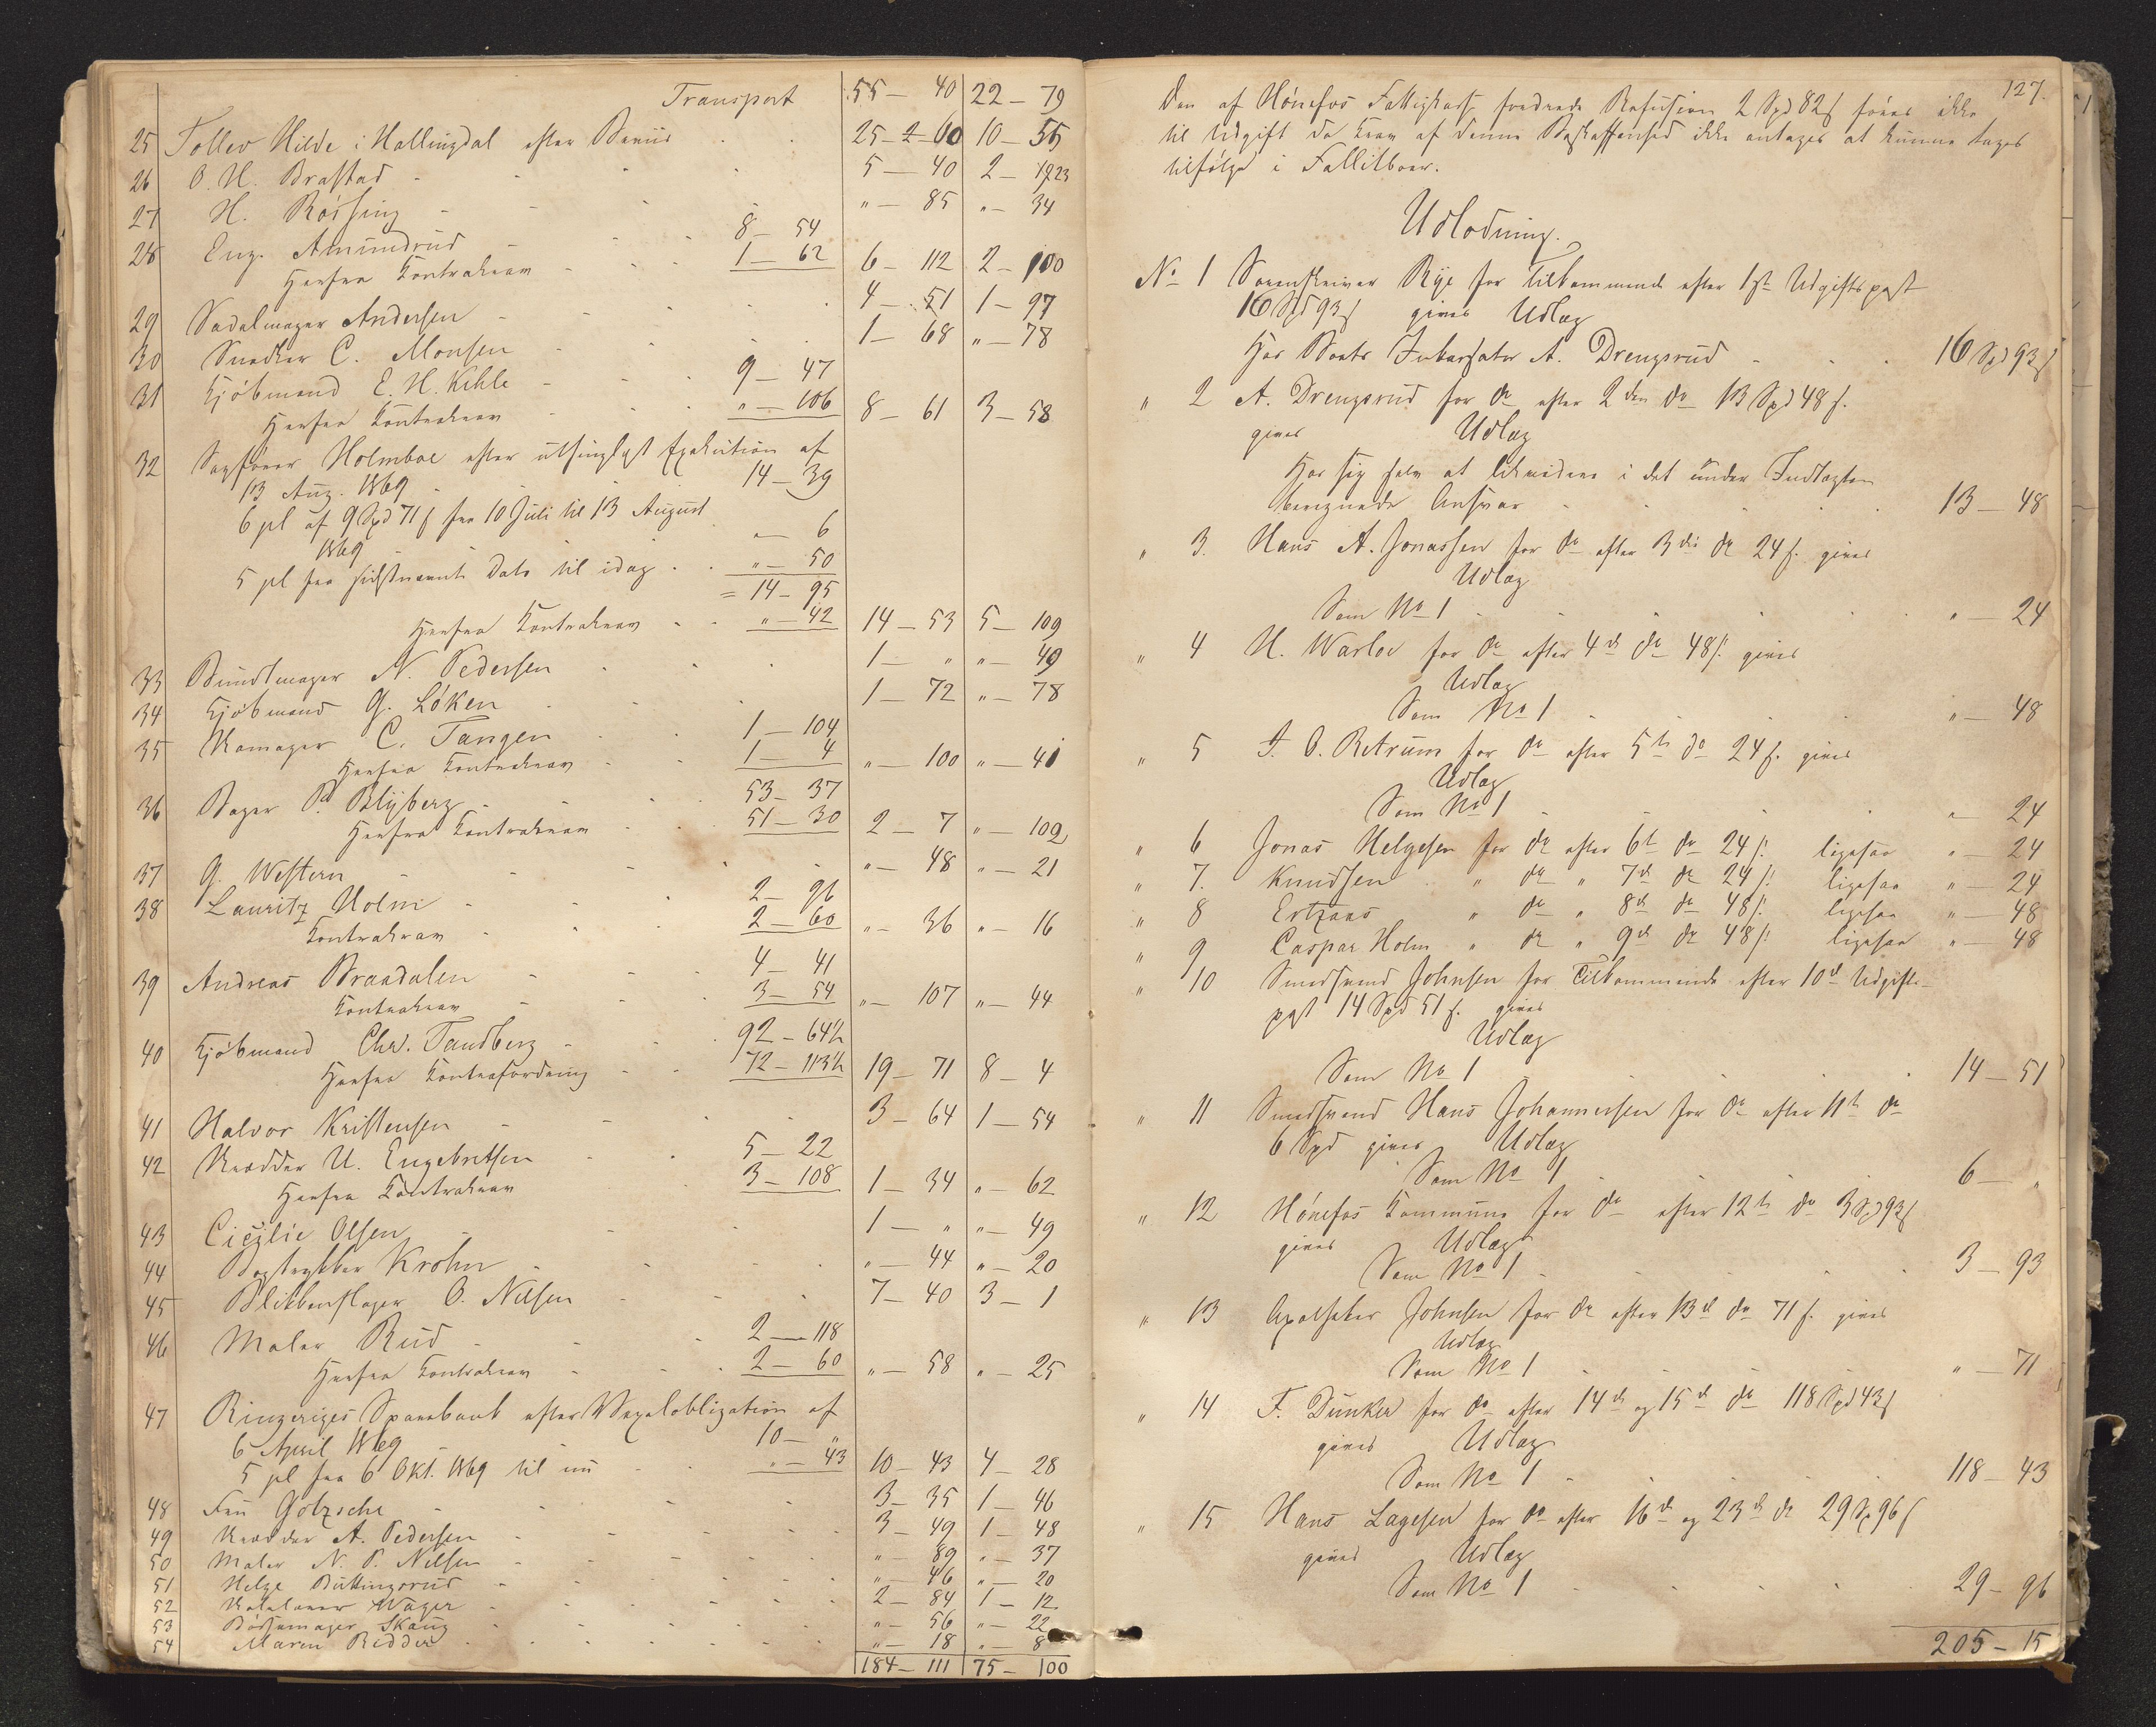 Transport 55 - 40 22 - 79
25 Tollev Hilde i Hallingdal efter Beviis 25 - 2 - 60 10 - 55
26 O. H. Brastad 5 - 40 2 - 23
27 H. Rössing " - 85 " - 34
28 Eng. Amundrud 8 - 54
Herfra Kontrakrav 1 - 62 6 - 112 2 - 100
29 Sadelmager Andersen 4 - 51 1 - 97
30 Snedker C. Monsen 1 - 68 " - 78
31 Kjöbmand E. H. Kihle 9 - 47
Herfra Kontrakrav " - 106 8 - 61 3 - 58
32 Sagförer Holmboe efter utinglyst Exekution af
13 Aug. 1869 14 - 39
6 pCt af 9 Spd 71 s fra 10 Juli til 13 August
1869 " - 6
5 pCt fra sidstnævnte Dato til idag " - 50
= 14 - 95
Herfra Kontrakrav " - 42 14 - 53 5 - 109
33 Bundtmager N. Pedersen 1 - " " - 49
34 Kjöbmand G. Löken 1 - 72 " - 78
35 C. Tangen 1 - 104
Herfra Kontrakrav 1 - 4 " - 100 " - 41
36 Bager P. Blyberg 53 - 37
Herfra Kontrakrav 51 - 30 2 - 7 " - 102
37 G. Western " - 48 " - 21
38 Lauritz Holm 2 - 96
Kontrakrav 2 - 60 " - 36 " - 16
39 Andreas Braadalen 4 - 41
Kontrakrav 3 - 54 " - 107 " - 44
40 Kjöbmand Chr. Tandberg 92 - 64½
Herfra Kontrafordring 72 - 113½ 19 - 71 8 - 4
41 Halvor Kristensen 3 - 64 1 - 54
42 Skrædder U. Engebretsen 5 - 22
Herfra Kontrakrav 3 - 108 1 - 34 " - 62
43 Cicilie Olsen 1 - " " - 49
44 Bogtrykker Krohn " - 44 " - 20
45 Blikkenslager O. Nilsen 7 - 40 3 - 1
46 Maler Rud 2 - 118
Herfra Kontrakrav 2 - 60 " - 58 " - 25
47 Ringeriges Sparebank efter Vexelobligation af
6 April 1869 10 - "
5 pCt fra 6 Okt. 1869 til nu " - 43 10 - 43 4 - 28
48 Fru Götzsche 3 - 35 1 - 46
49 Skrædder A. Pedersen 3 - 49 1 - 48
50 Maler N. P. Nilsen " - 89 " - 37
51 Helge Büttingsrud " - 46 " - 20
52 Wager 2 - 84 1 - 12
53 Bössemager Skaug " - 56 " - 22
54 Maren Ridder " - 18 " - 8
184 - 111 75 - 100
127.
Den af Hönefos Fattigkasse fordrede Refusion 2 Spd 82 s föres ikke
til Udgift da Krav af denne Beskaffenhed ikke antages at kunne tages
tilfölge i Fallitboer.
Udlodning.
No 1 Sorenskriver Rye for Tilkommende efter 1ste Udgiftspost
16 Spd 93 s gives Udlæg
Hos Boets Inkassator A. Drengsrud 16 Spd 93 s
" 2 A. Drengsrud for do efter 2den do 13 Spd 48 s.
gives Udlæg
Hos sig selv at likvidere i det under Indtægten
beregnede Ansvar 13 - 48
" 3. Hans A. Jonassen for do efter 3die do 24 s. gives
Udlæg
Som No 1 " - 24
" 4 H. Warloe for do efter 4de do 48 s. gives
Udlæg
Som No 1 " - 48
" 5 A. O. Retrum for do efter 5te do 24 s. gives
Udlæg
Som No 1 " - 24
" 6 Jonas Helgesen for do efter 6te do 24 s. ligesaa " - 24
" 7. Knudsen " do " 7de do 24 s. ligesaa " - 24
" 8 Ertzaas " do " 8de do 48 s. ligesaa " - 48
" 9 Caspar Holm " do " 9de do 48 s. ligesaa " - 48
" 10 Smedsvend Johnsen for Tilkommende efter 10de Udgifts-
post 14 Spd 51 s. gives
Udlæg
Som No 1 14 - 51
" 11 Smedsvend Hans Johannesen for do efter 11te do
6 Spd gives Udlæg
Som No 1 6 - "
" 12 Hönefos Kommune for do efter 12te do 3 Spd 93 s
gives Udlæg
Som No 1 3 - 93
" 13 Apotheker Johnsen for do efter 13de do 71 s. gives
Udlæg
Som No 1 " - 71
" 14 F. Dunker for do efter 14de og 15de do 118 Spd 43 s
gives Udlæg
Som No 1 118 - 43
" 15 Hans Lagesen for do efter 16de og 23de do 29 Sp 96 s
gives Udlæg
Som No 1 29 - 96
205 - 15